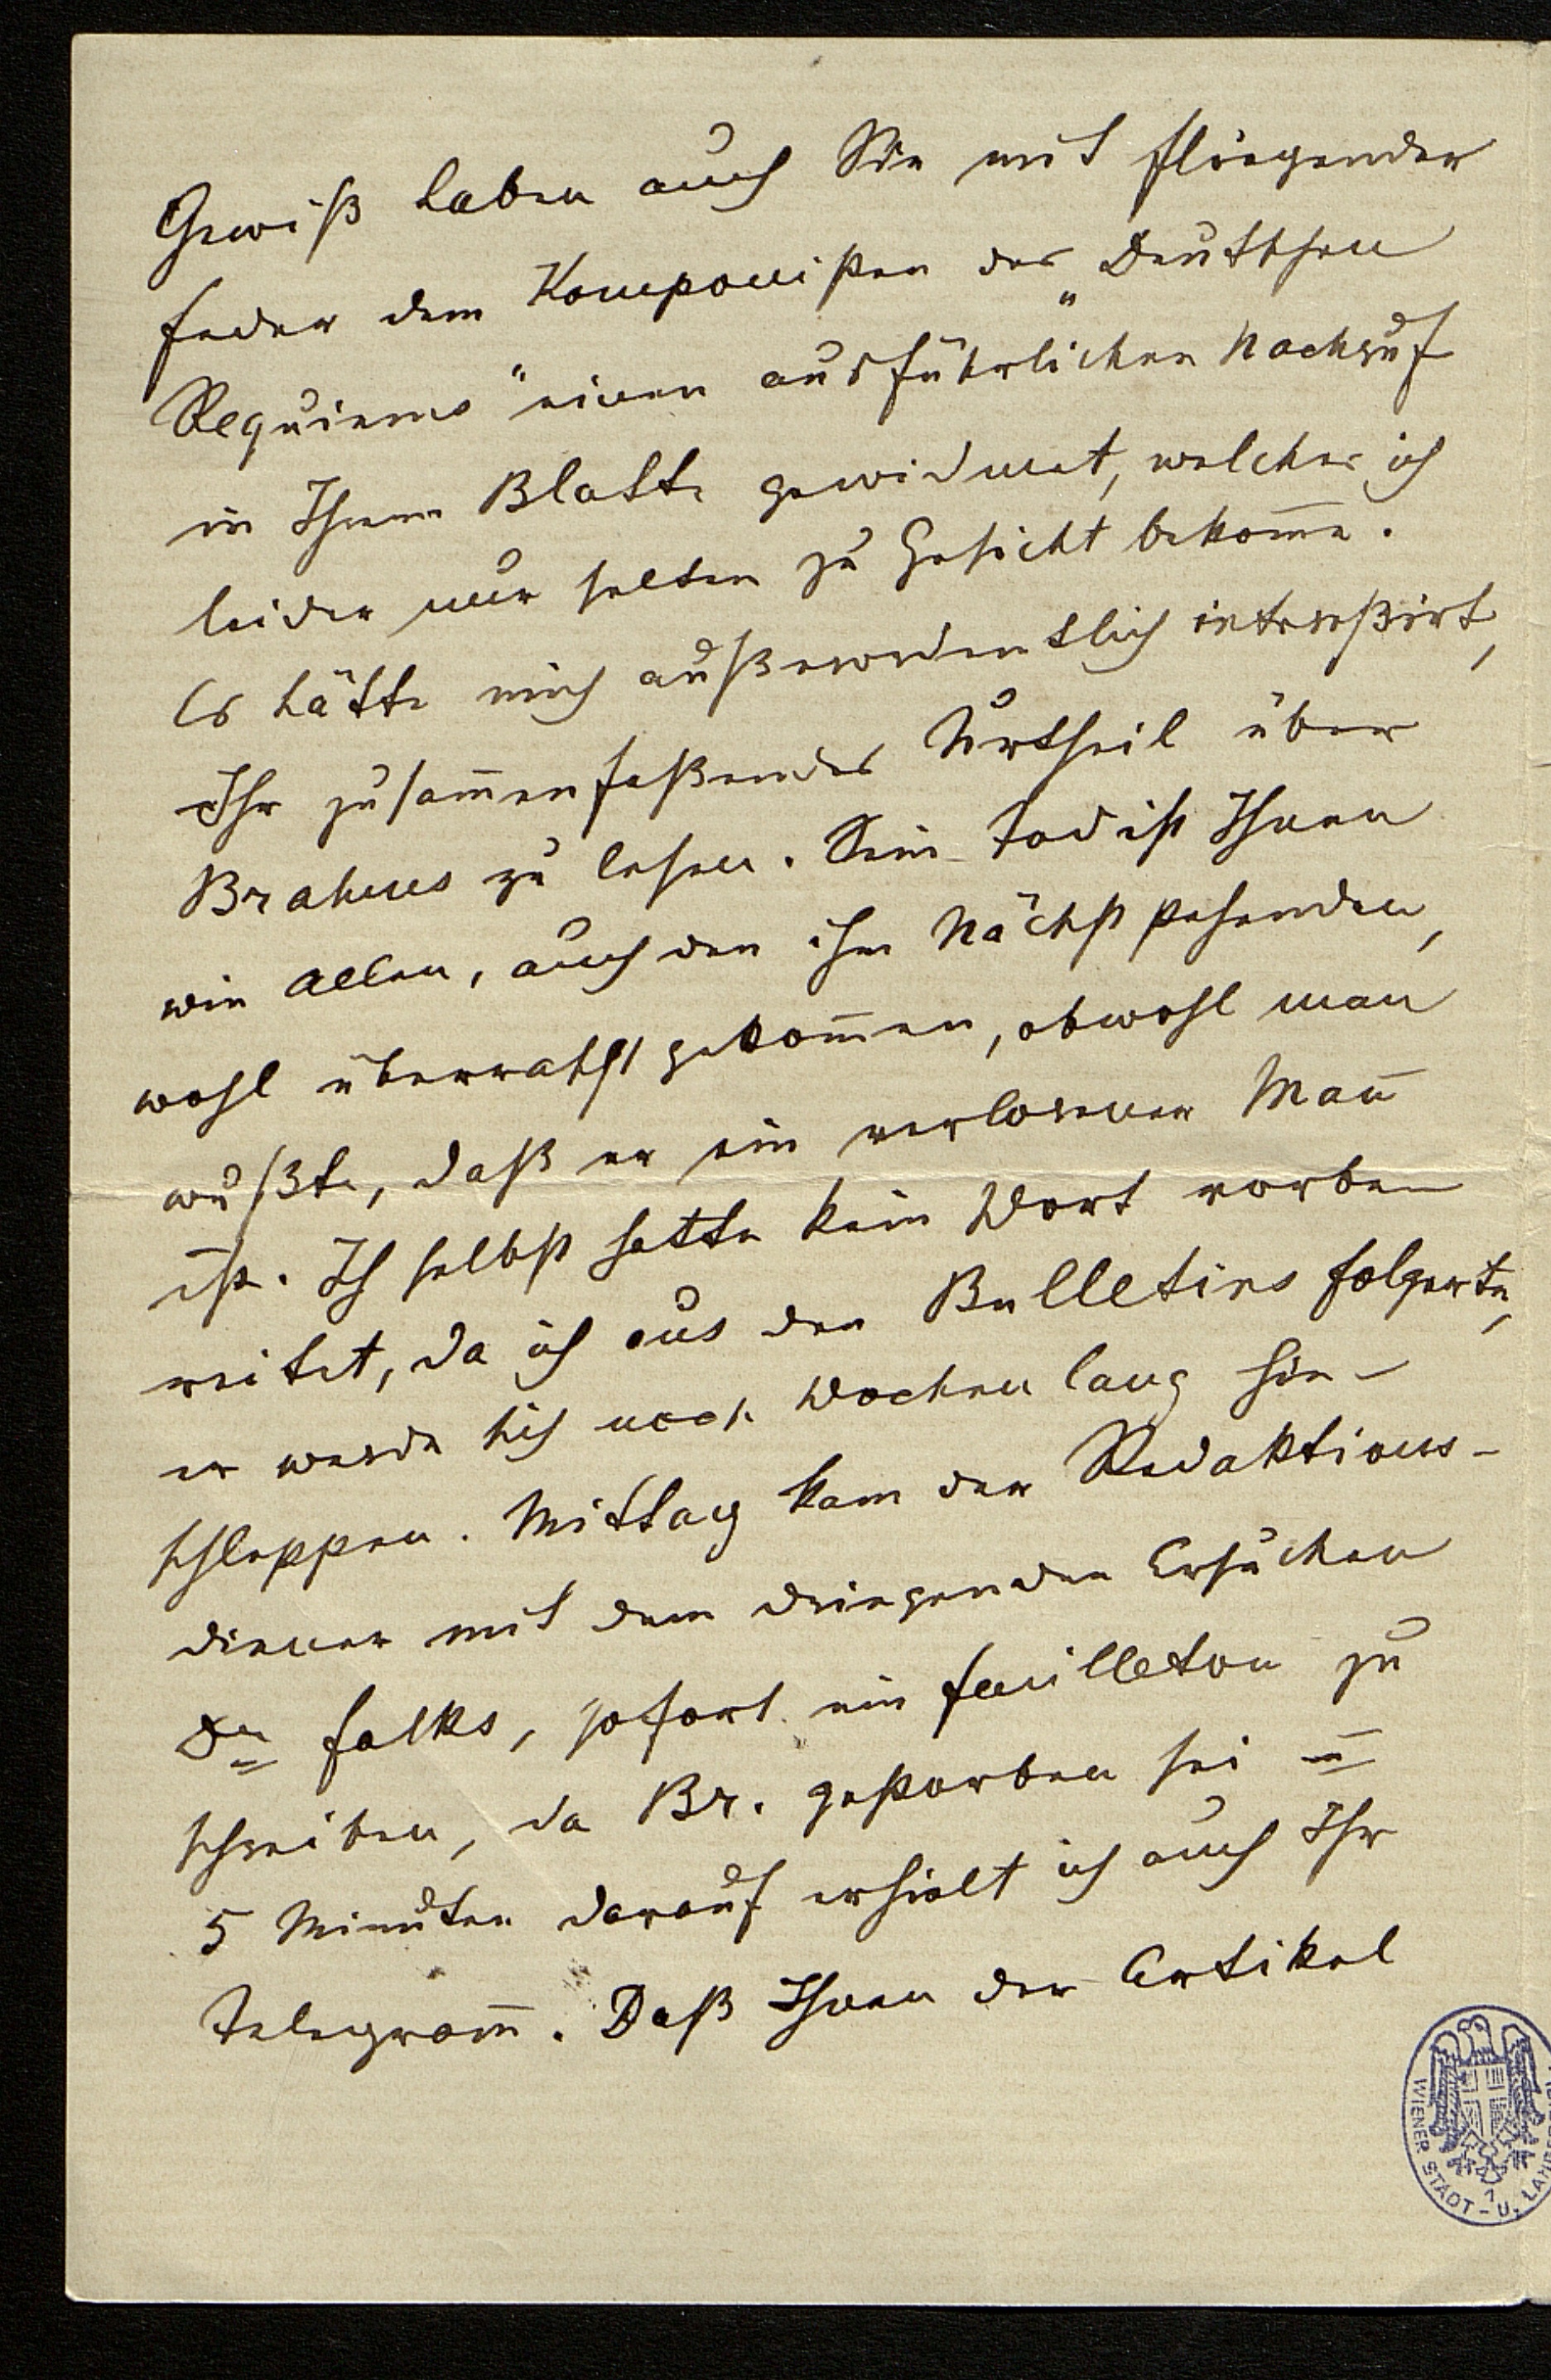 Gewiß haben auch Sie mit fliegender
Feder dem Komponisten des „Deutschen
Requiems“ einen ausführlichen Nachruf
in Ihrem Blatte gewidmet, welches ich
leider nur selten zu Gesicht bekom̅e.
Es hätte mich außerordentlich intereßirt,
Ihr zusam̅enfaßendes Urtheil über
Brahms zu lesen. Sein Tod ist Ihnen
wie allen, auch den ihm Nächststehenden,
wohl überrascht gekom̅en, obwohl man
wußte, daß er ein verlorener Man̅
ist. Ich selbst hatte kein Wort vorbe-
reitet, da ich aus den Bulletins folgerte,
er werde sich noch Wochen lang hin-
schleppen. Mittag kam der Redaktions-
diener mit dem dringenden Ersuchen
Dr Falks, sofort ein Feuilleton zu
schreiben, da Br. gestorben sei u̅
5 Minuten darauf erhielt ich auch Ihr
Telegram̅. Daß Ihnen der Artikel
WIENER STADT - U.